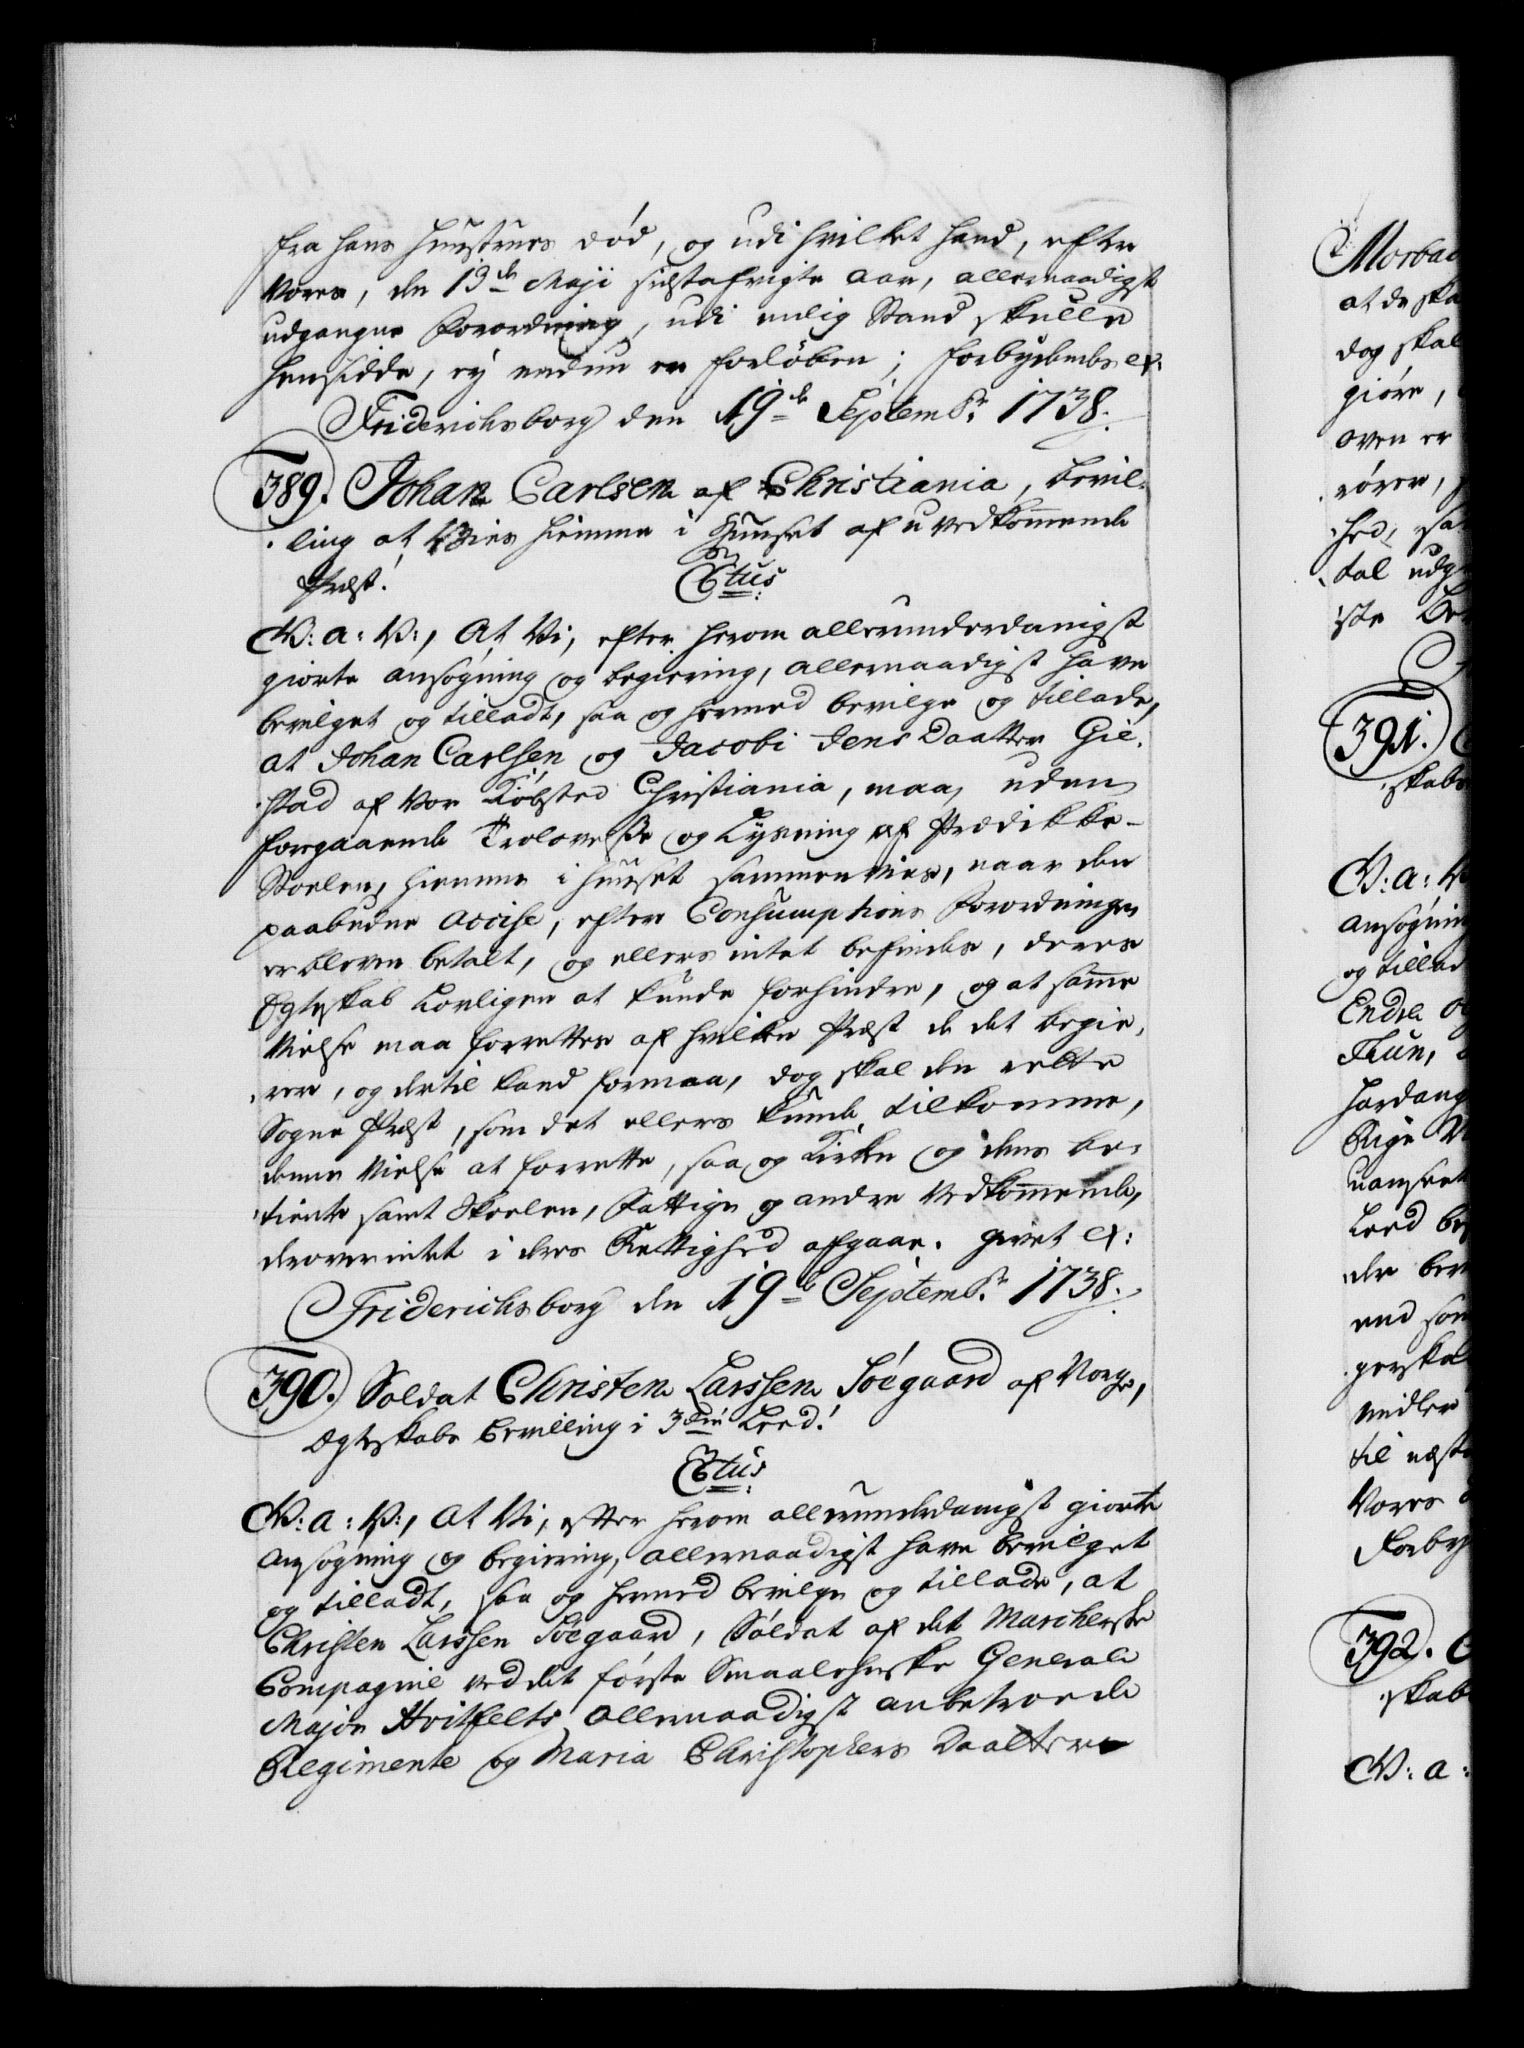 fra hans Hustrues død, og udi hvilket hand, efter
Vores, den 19de Maji sidstafvigte Aar, allernaadigst
udgangne Forordning, udi enlig Stand skulle
hensidde, ey endnu er forløben; Forbydendes etc.
Friderichsborg den 19de Septembr. 1738.
389. Johan Carlsen af Christiania, bevil-
ling at Vies hiemme i Huuset af uvedkommende
Præst!
C5tus
V: a: V:, At Vi, efter herom allerunderdanigst
giorte ansøgning og begiering, allernaadigst have
bevilget og tilladt, saa og hermed bevilge og tillade,
at Johan Carlsen og Jacobi Jens Daatter Gie-
stad af Vor Kiøbsted Christiania, maa, uden
foregaaende Trolovelse og Lysning af Prædikke-
Stoelen, hiemme i huuset sammenvies, naar den
paabudne Accise, efter Consumptions Forordningen
er bleven betalt, og ellers intet befindes, deres
Egteskab Lovligen at kunde forhindre, og at samme
Vielse maa forrettes af hvilken Præst de det begie-
rer, og dertil kand formaa, dog skal den rette
Sogne Præst, som det ellers kunde tilkomme,
denne Vielse at forrette, saa og Kirken og dens be-
tiente samt Skoelen, Fattige og andre Vedkommende,
derover intet i deres Rettighed afgaae. Givet etc:
Friderichsborg den 19de Septembr. 1738.
390. Soldat Christen Larssen Söegaard af Norge,
Egteskabs Bevilling i 3die Leed!
C5tus
V: a: V:, At Vi, efter herom allerunderdanigst giorte
Ansøgning og begiering, allernaadigst have bevilget
og tilladt, saa og hermed bevilge og tillade, at
Christen Larssen Söegaard, Soldat af det Marcherske
Compagnie ved det første Smaalehnske General
Major Hvitfelts allernaadigst anbetroede
Regimente og Maria Christophers Daatter
Morbac
at de ska
dog skal
giöre,
oven er
rörer,
hed, sa
tal udg
iste
391.
skabs
V: a: V
Ansøgning
og tillad
Endre og
Thun,
Hardang
Rige N
uanseet
Leed be
der ber
end som
gerskab
midler
til næst
Vores
Forby
392. C
skab
V: a: